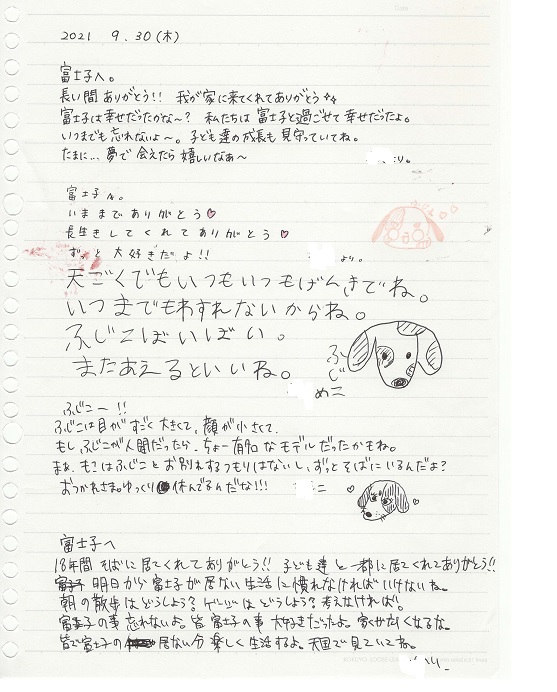 2021 9.30(木)
富士子へ。
長い間ありがとう!! 我が家に来てくれてありがとう
富士子は幸せだったかな〜? 私たちは富士子と過ごせて幸せだったよ。
いつまでも忘れないよ〜。子ども達の成長も見守っていてね。
たまに…夢で会えたら嬉しいなぁ〜
より。
富士子へ。
いままでありがとう♡
長生きしてくれてありがとう♡
ずっと大好きだよ!!
より。
天ごくでもいつもいつもげんきでね。
いつまでもわすれないからね。
ふじこばいばい。
またあえるといいね。
ふじ
めこ
ふじこー!!
ふじこは目がすごく大きくて、顔が小さくて
もしふじこが人間だったら、ちょー有名なモデルだったかもね。
まぁ、もこはふじことお別れするつもりはないし、ずっとそばにいるんだよ?
おつかれさま。ゆっくり休んでるんだな!!!
こ
富士子へ
18年間そばに居てくれてありがとう!! 子ども達と一都に居てくれてありがとう!!
明日から富士子が居ない生活に慣れなければいけないね。
朝の散歩はどうしよう? ゲージはどうしよう? 考えなければ。
富士子の事忘れないよ。皆富士子の事大好きだったよ。
皆で富士子の居ない分楽しく生活するよ。天国で見ていてね。